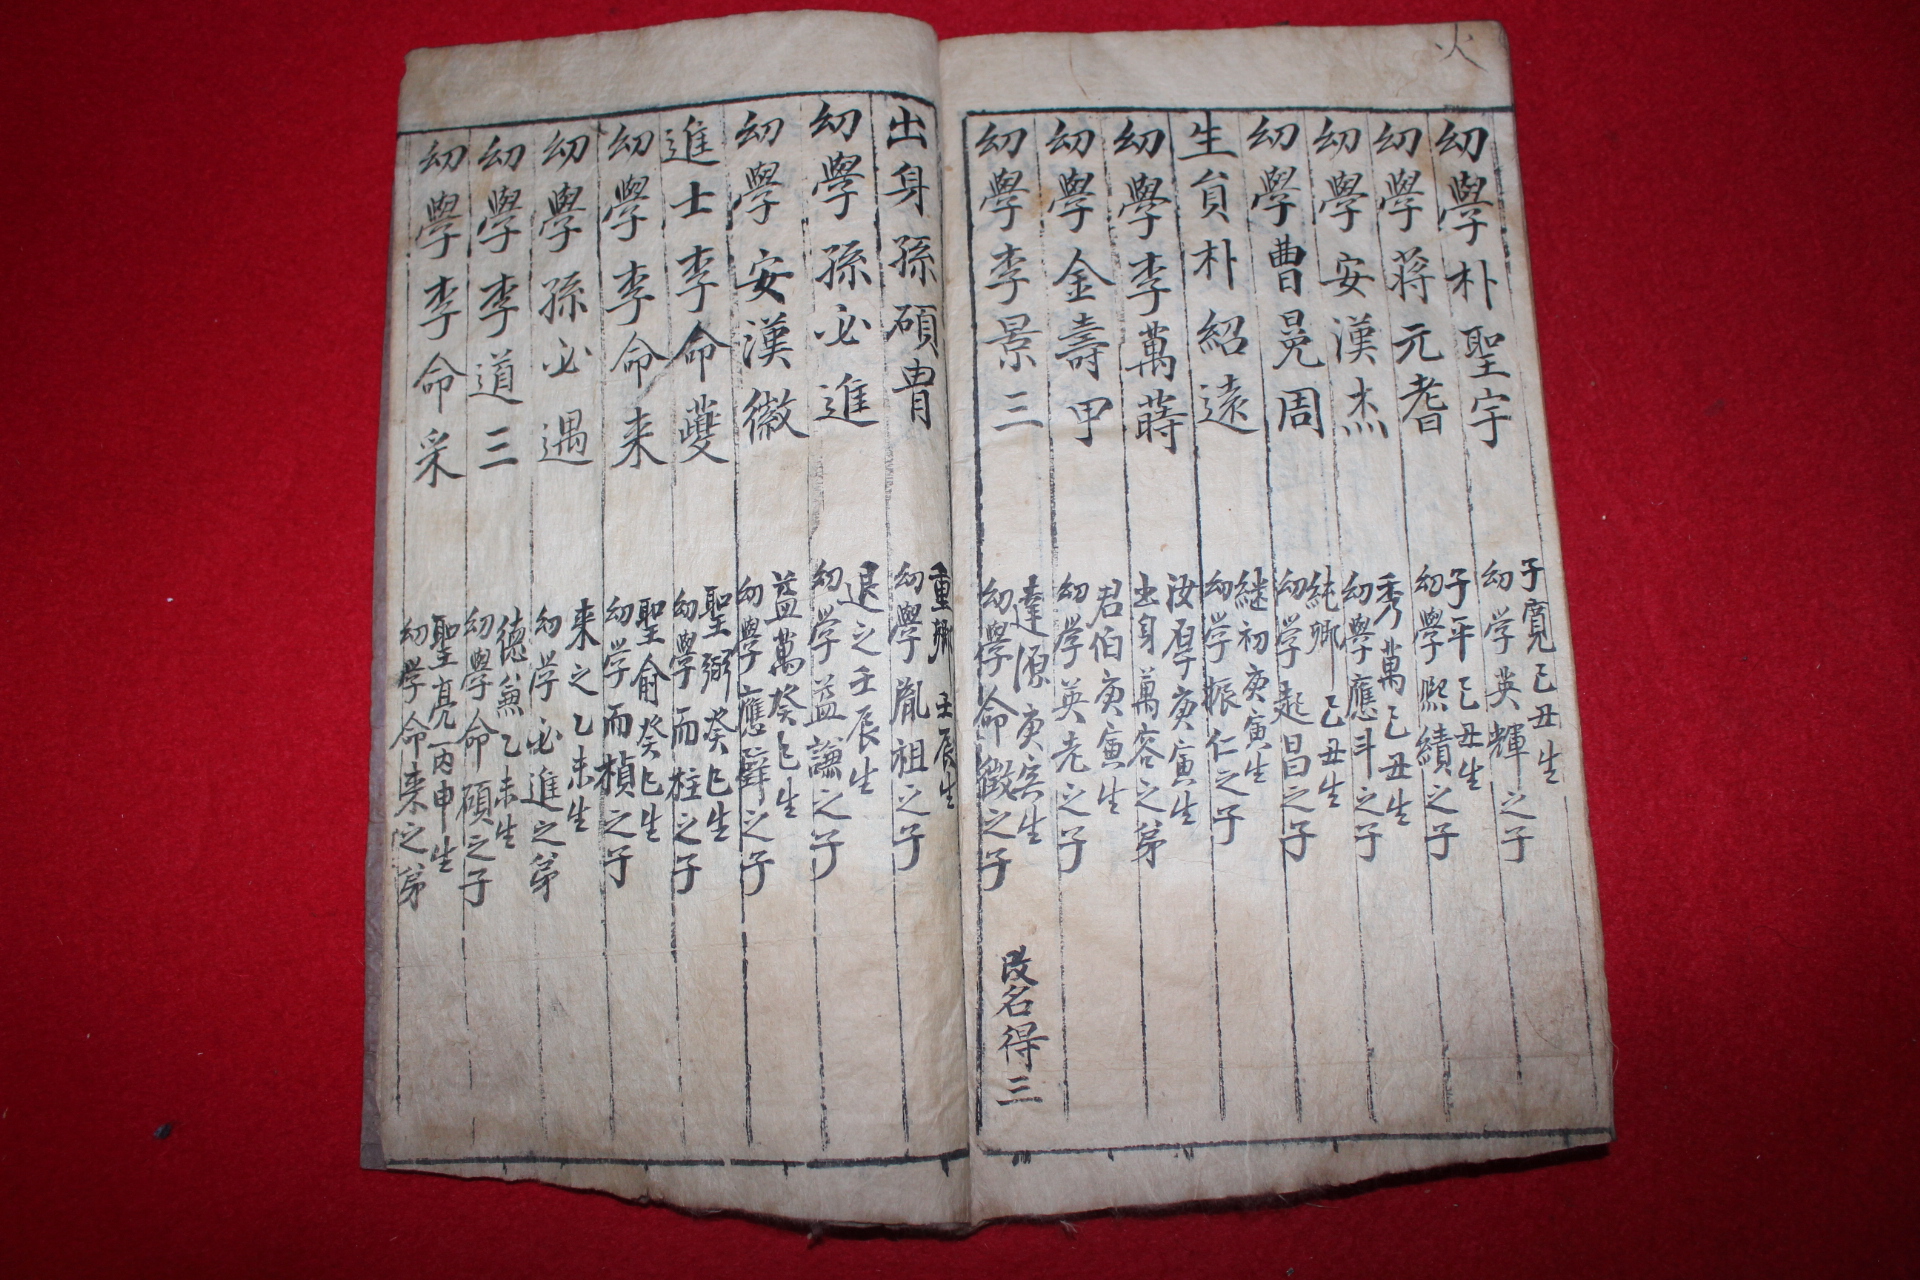 火
幼學朴聖宇 子寬己丑生 幼学英輝之子
幼學蔣元耆 子平己丑生 幼學熙績之子
幼學安漢杰 秀萬己丑生 幼學應斗之子
幼學曹冕周 純卿己丑生 幼学起昌之子
生員朴紹遠 継初庚寅生 幼学振仁之子
幼學李萬蒔 汝厚庚寅生 出身萬容之弟
幼學金壽甲 君伯庚寅生 幼学英老之子
幼學李景三 達源庚寅生 幼學命徵之子 改名得三
出身孫碩胄 重卿壬辰生 幼學胤祖之子
幼學孫必進 退之壬辰生 幼学益謙之子
幼學安漢徽 益萬癸巳生 幼學應辟之子
進士李命夔 聖弼癸巳生 幼學而柱之子
幼學李命来 聖俞癸巳生 幼学而楨之子
幼學孫必遇 来之乙未生 幼学必進之弟
幼學李道三 德兼乙未生 幼學命碩之子
幼學李命采 聖亮丙申生 幼学命来之弟